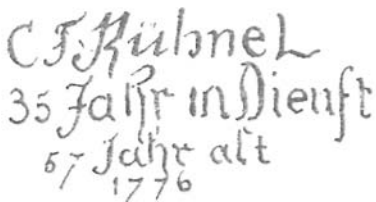 C F. Kühnel
35 Jahr in Dienst
57 Jahr alt
1776